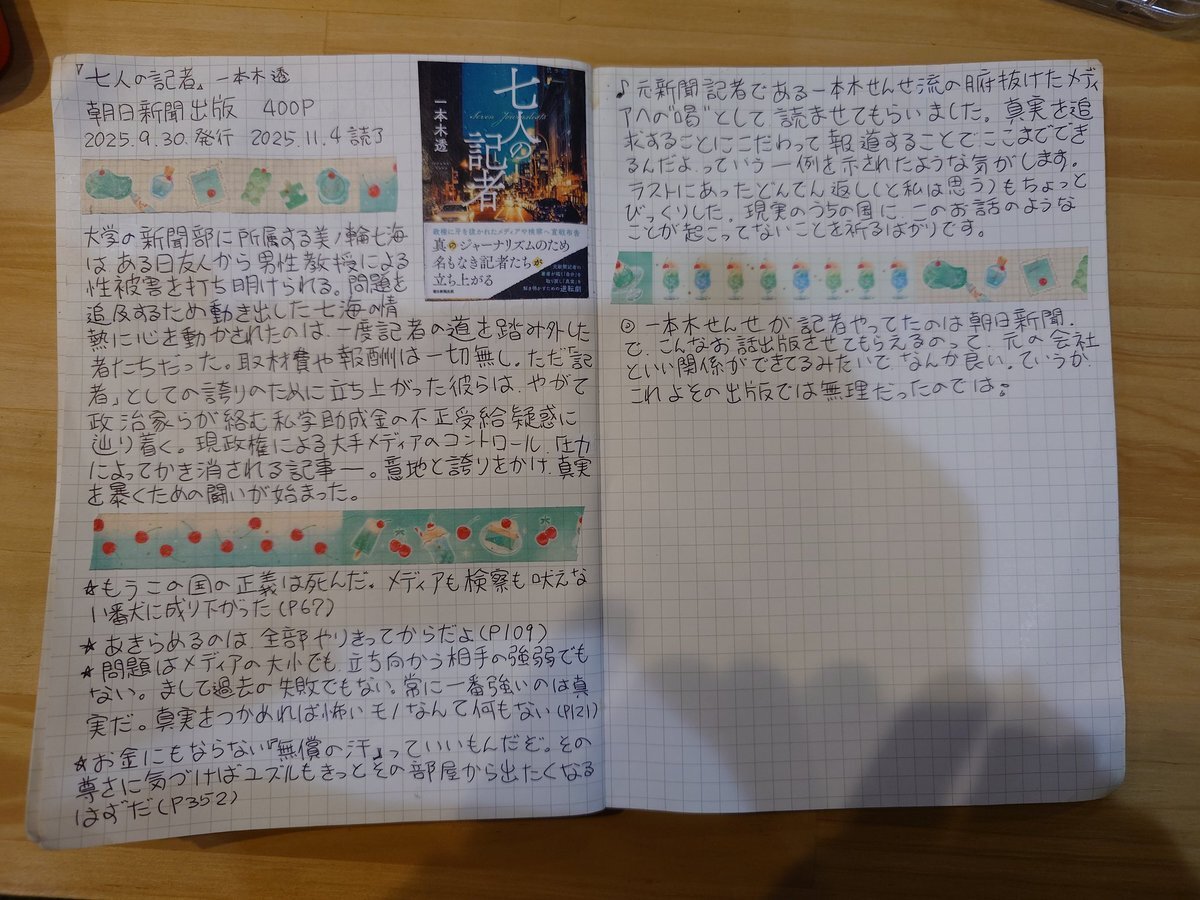 『七人の記者』 一本木透
朝日新聞出版 400P
2025.9.30.発行 2025.11.4 読了
七人の
記者
Seven Journalists
一本木透
政権に牙を抜かれたメディアや検察へ宣戦布告
真のジャーナリズムのため
名もなき記者たちが
立ち上がる
大学の新聞部に所属する美ノ輪七海
はある日友人から男性教授による
性被害を打ち明けられる。問題を
追及するため動き出した七海の情
熱に心を動かされたのは、一度記者の道を踏み外した
者たちだった。取材費や報酬は一切無し。ただ「記
者」としての誇りのために立ち上がった彼らは、やがて
政治家らが絡む私学助成金の不正受給疑惑に
辿り着く。現政権による大手メディアのコントロール、圧力
によってかき消される記事―。意地と誇りをかけ、真実
を暴くための闘いが始まった。
☆もうこの国の正義は死んだ。メディアも検察も吠えな
い番犬に成り下がった(P67)
★あきらめるのは、全部やりきってからだよ(P109)
★問題はメディアの大小でも、立ち向かう相手の強弱でも
ない。まして過去の失敗でもない。常に一番強いのは真
実だ。真実をつかめれば怖いモノなんて何もない(P121)
☆お金にもならない『無償の汗』っていいもんだぞ。その
尊さに気づけばユズルもきっとその部屋から出たくなる
はずだ(P352)
♪元新聞記者である一本木せんせ流の腑抜けたメディ
アへの"喝"として読ませてもらいました。真実を追
求することにこだわって報道することで、ここまでできる
んだよ、っていう一例を示されたような気がします。
ラストにあったどんでん返し(と私は思う)もちょっと
びっくりした。現実のうちの国に、このお話のような
ことが起こってないことを祈るばかりです。
一本木せんせが記者やってたのは朝日新聞。
で、こんなお話出版させてもらえるのって、元の会社
といい関係ができてるみたいでなんか良い。ていうか、
これよその出版では無理だったのでは。